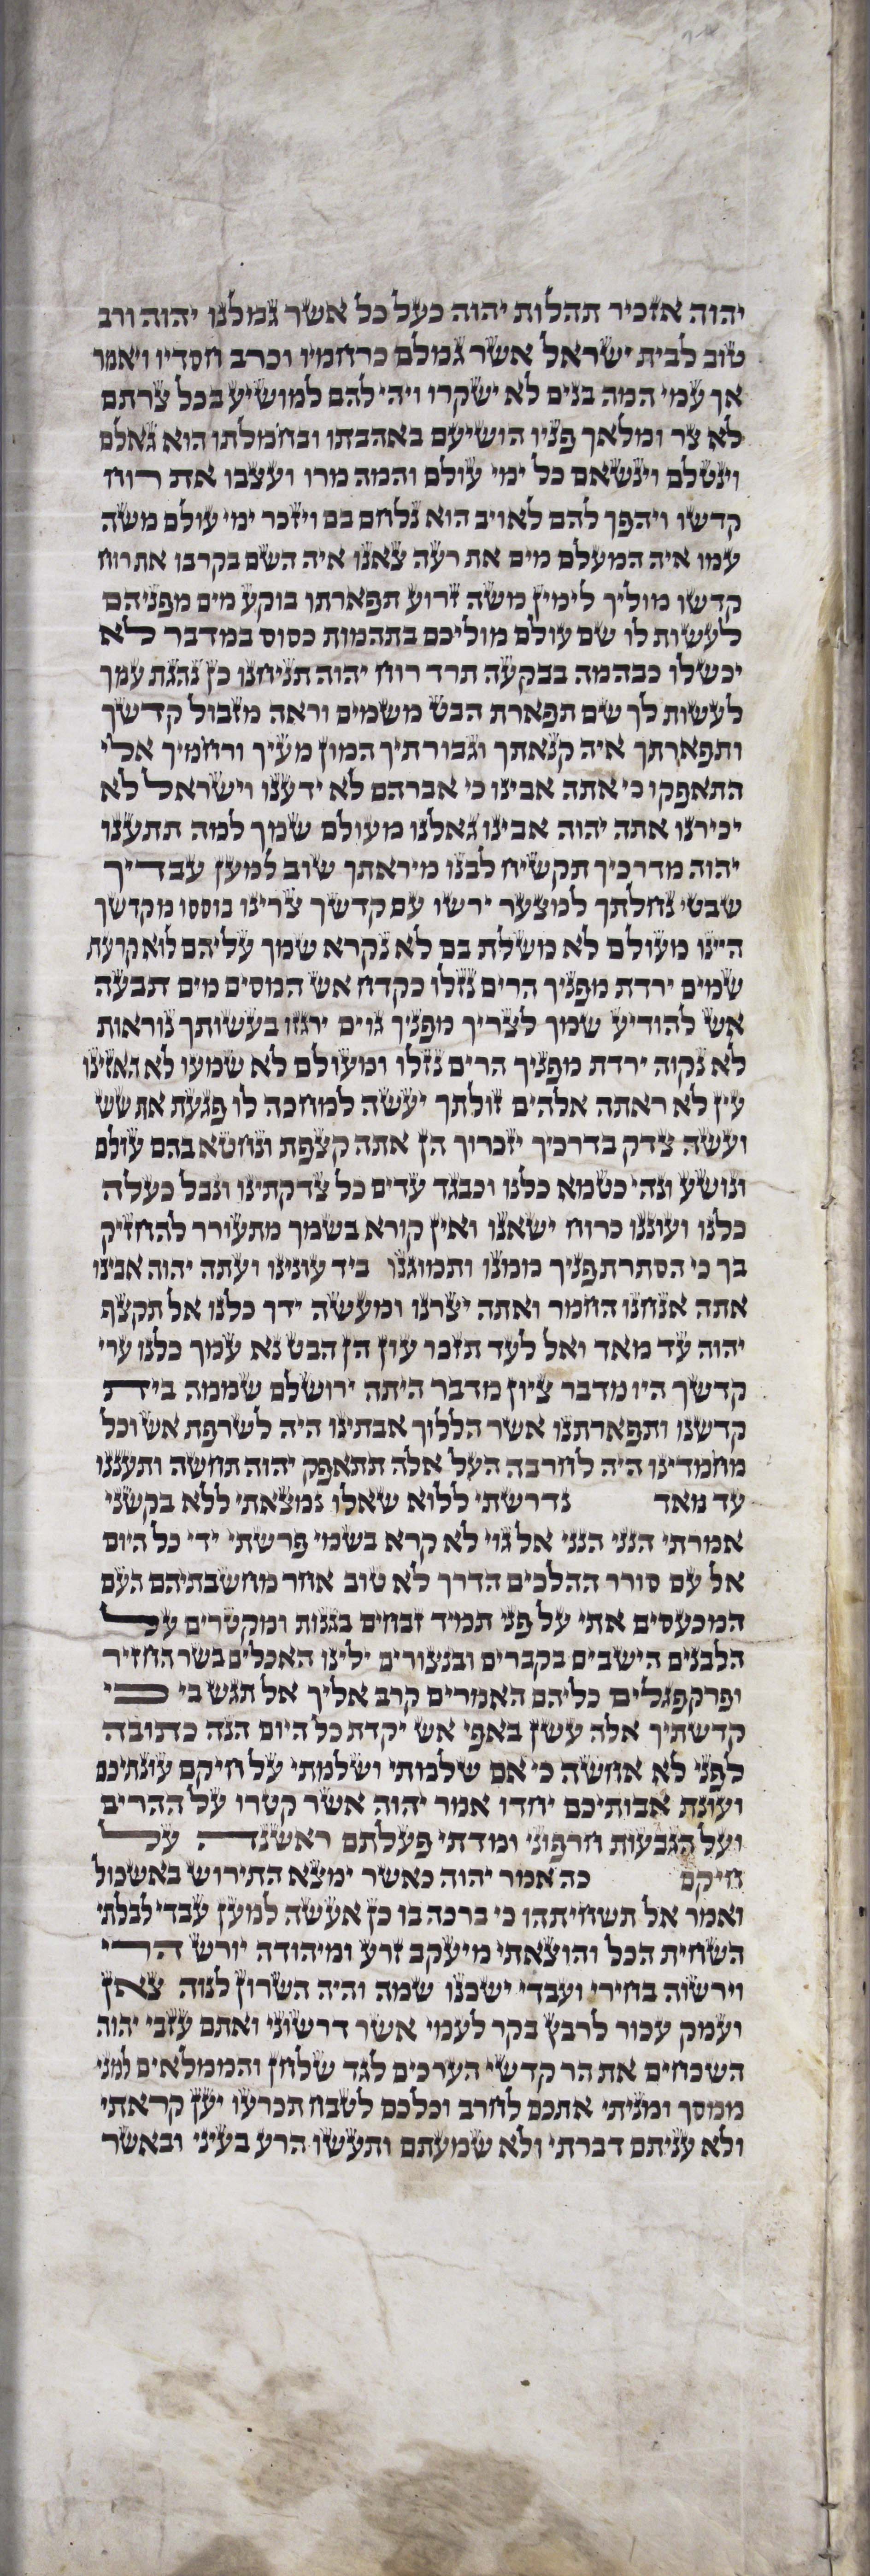 יהוה אזכיר תהלות יהוה כעל כל אשר גמלנו יהוה ורב
טוב לבית ישראל אשר גמלם כרחמיו וכרב חסדיו ויאמר
אך עמי המה בנים לא ישקרו ויהי להם למושיע בכל צרתם
לא צר ומלאך פניו הושיעם באהבתו ובחמלתו הוא גאלם
וינטלם וינשאם כל ימי עולם והמה מרו ועצבו את רוח
קדשו ויהפך להם לאויב הוא נלחם בם ויזכר ימי עולם משה
עמו איה המעלם מים את רעה צאנו איה השם בקרבו את רוח
קדשו מוליך לימין משה זרוע תפארתו בוקע מים מפניהם
לעשות לו שם עולם מוליכם בתהמות כסוס במדבר לא
יכשלו כבהמה בבקעה תרד רוח יהוה תניחנו כן נהגת עמך
לעשות לך שם תפארת הבט משמים וראה מזבול קדשך
ותפארתך איה קנאתך וגבורתיך המון מעיך ורחמיך אלי
התאפקו כי אתה אבינו כי אברהם לא ידענו וישראל לא
יכירנו אתה יהוה אבינו גאלנו מעולם שמך למה תתענו
יהוה מדרכיך תקשיח לבנו מיראתך שוב למען עבדיך
שבטי נחלתך למצער ירשו עם קדשך צרינו בוססו מקדשך
היינו מעולם לא משלת בם לא נקרא שמך עליהם לוא קרעת
שמים ירדת מפניך הרים נזלו כקדח אש המסים מים תבעה
אש להודיע שמך לצריך מפניך גוים ירגזו בעשותך נוראות
לא נקוה ירדת מפניך הרים נזלו ומעולם לא שמעו לא האזינו
עין לא ראתה אלהים זולתך יעשה למחכה לו פגעת את שש
ועשה צדק בדרכיך יזכרוך הן אתה קצפת ונחטא בהם עולם
ונושע ונהי כטמא כלנו וכבגד עדים כל צדקתינו ונבל כעלה
כלנו ועוננו כרוח ישאנו ואין קורא בשמך מתעורר להחזיק
בך כי הסתרת פניך ממנו ותמוגנו ביד עונינו ועתה יהוה אבינו
אתה אנחנו החמר ואתה יצרנו ומעשה ידך כלנו אל תקצף
יהוה עד מאד ואל לעד תזכר עון הן הבט נא עמך כלנו ערי
קדשך היו מדבר ציון מדבר היתה ירושלם שממה בית
קדשנו ותפארתנו אשר הללוך אבתינו היה לשרפת אש וכל
מחמדינו היה לחרבה העל אלה תתאפק יהוה תחשה ותעננו
עד מאד נדרשתי ללוא שאלו נמצאתי ללא בקשני
אמרתי הנני הנני אל גוי לא קרא בשמי פרשתי ידי כל היום
אל עם סורר ההלכים הדרך לא טוב אחר מחשבתיהם העם
המכעסים אתי על פני תמיד זבחים בגנות ומקטרים על
הלבנים הישבים בקברים ובנצורים ילינו האכלים בשר החזיר
ופרק פגלים כליהם האמרים קרב אליך אל תגש בי כי
קדשתיך אלה עשן באפי אש יקדת כל היום הנה כתובה
לפני לא אחשה כי אם שלמתי ושלמתי על חיקם עונתיכם
ועונת אבותיכם יחדו אמר יהוה אשר קטרו על ההרים
ועל הגבעות חרפוני ומדתי פעלתם ראשנה על
חיקם כה אמר יהוה כאשר ימצא התירוש באשכול
ואמר אל תשחיתהו כי ברכה בו כן אעשה למען עבדי לבלתי
השחית הכל והוצאתי מיעקב זרע ומיהודה יורש הרי
וירשוה בחירי ועבדי ישכנו שמה והיה השרון לנוה צאן
ועמק עכור לרבץ בקר לעמי אשר דרשוני ואתם עזבי יהוה
השכחים את הר קדשי הערכים לגד שלחן והממלאים למני
ממסך ומניתי אתכם לחרב וכלכם לטבח תכרעו יען קראתי
ולא עניתם דברתי ולא שמעתם ותעשו הרע בעיני ובאשר